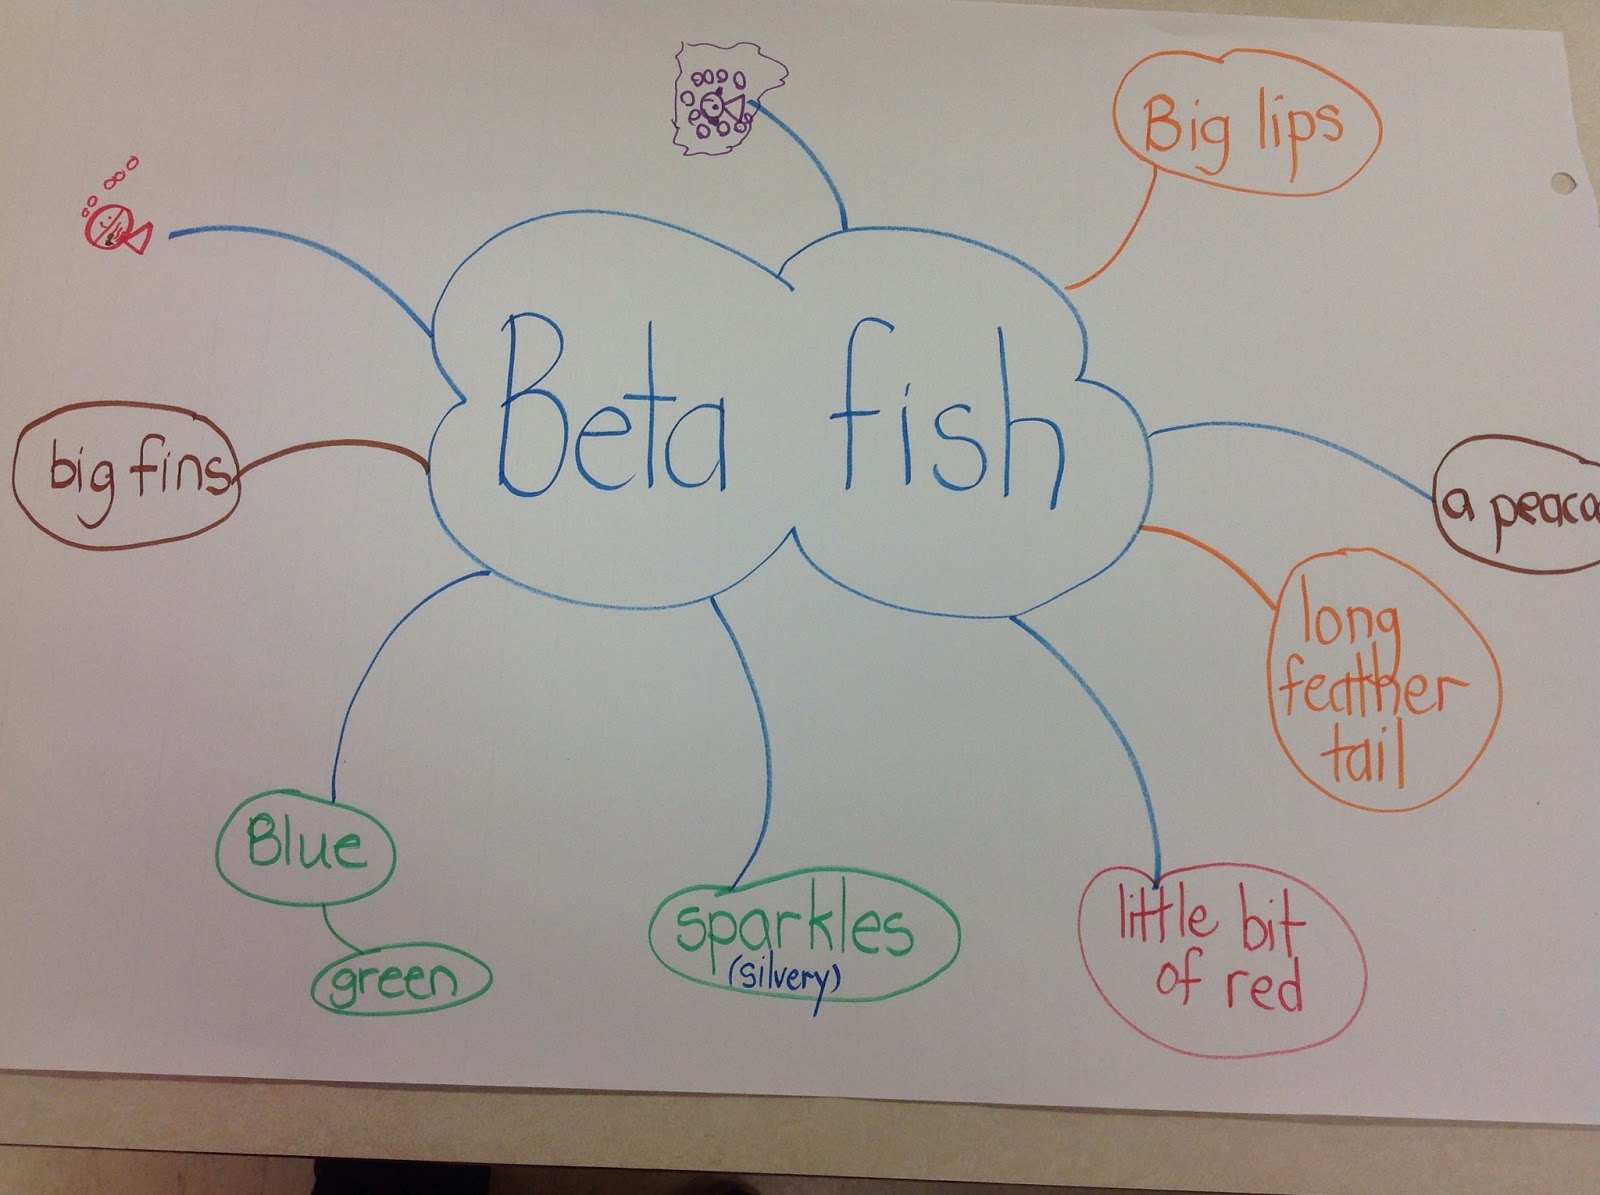 Big lips
Beta fish
big fins
a peaco
long
feather
tail
Blue
green
sparkles
(silvery)
little bit
of red